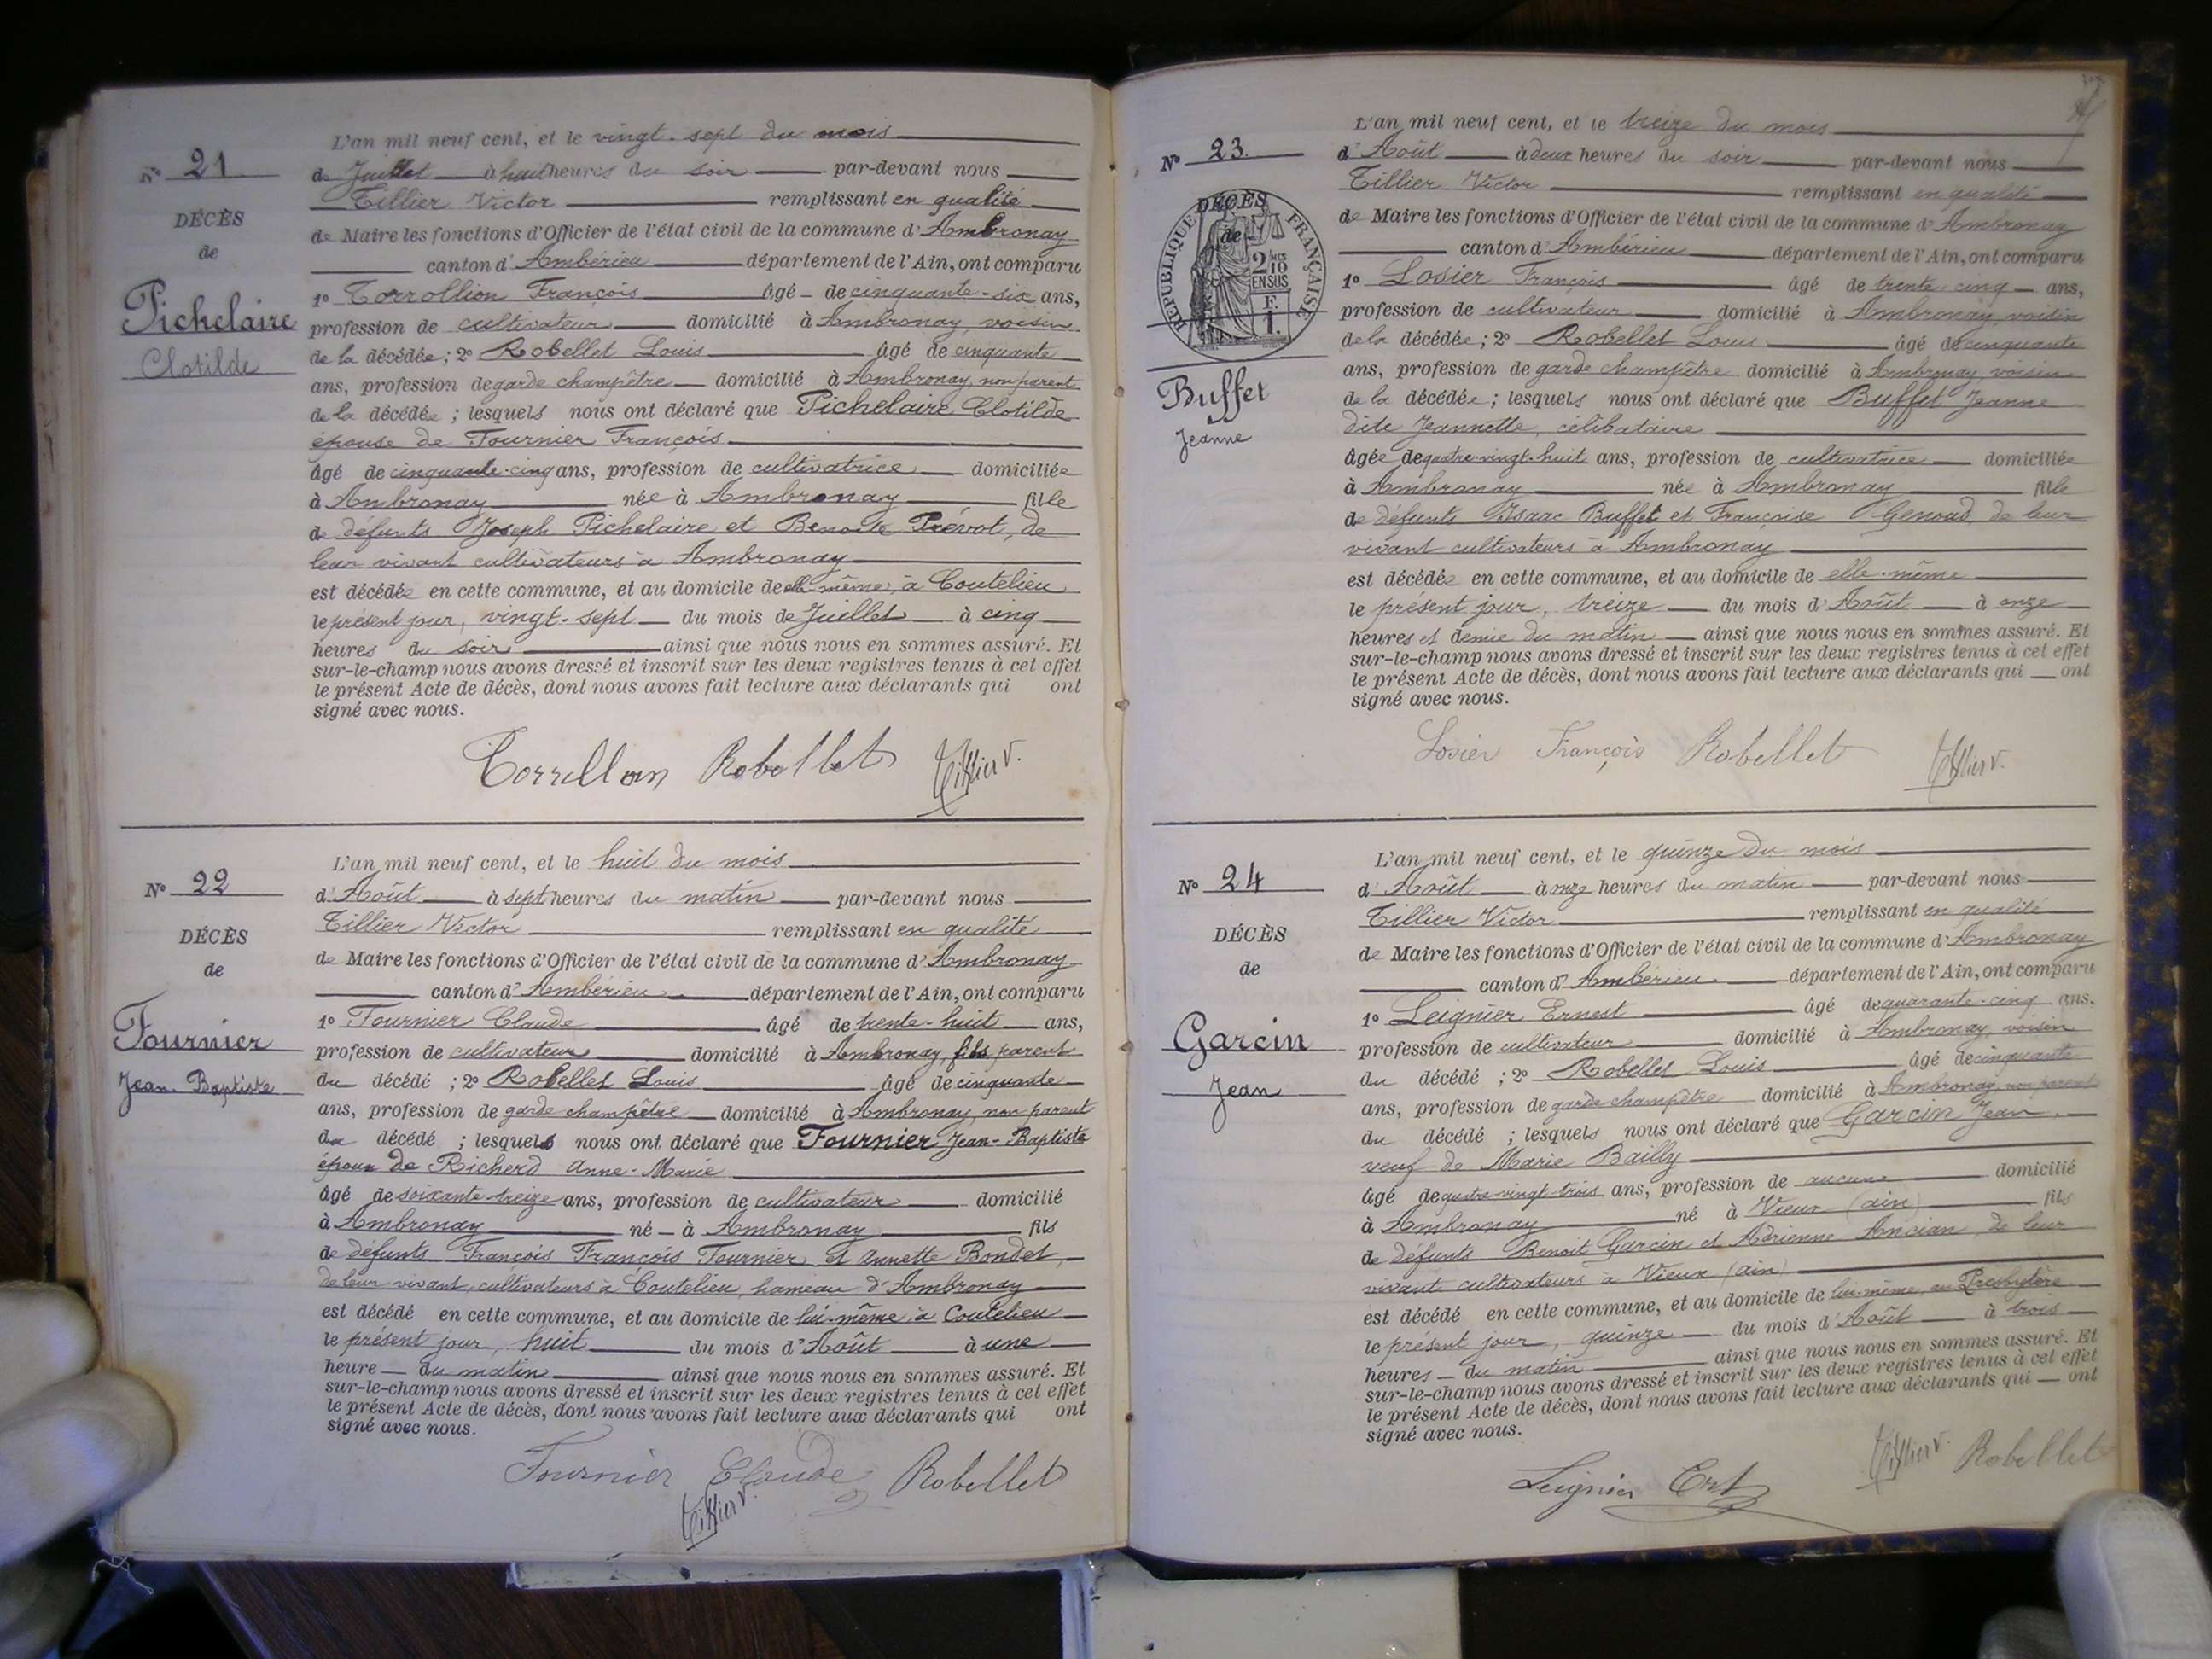 L'an mil neuf cent, et le vingt-sept du mois
N° 21
de Juillet à huit heures du soir par-devant nous
Tillier Victor remplissant en qualité
DÉCÈS
de Maire les fonctions d'Officier de l'état civil de la commune d'Ambronay
de
canton d'Ambérieu département de l'Ain, ont comparu
Pichelaire
1° Torrollion François âgé de cinquante-six ans,
profession de cultivateur domicilié à Ambronay, voisin
Clotilde
de la décédée ; 2° Robellet Louis âgé de cinquante
ans, profession de garde champêtre domicilié à Ambronay, non parent
de la décédée ; lesquels nous ont déclaré que Pichelaire Clotilde
épouse de Fournier François
âgé de cinquante-cinq ans, profession de cultivatrice domiciliée
à Ambronay née à Ambronay fille
de défunts Joseph Pichelaire et Benoite Prévot, de
leur vivant cultivateurs à Ambronay
est décédée en cette commune, et au domicile de elle-même, à Coutelieu
le présent jour, vingt-sept du mois de Juillet à cinq
heures du soir ainsi que nous nous en sommes assuré. Et
sur-le-champ nous avons dressé et inscrit sur les deux registres tenus à cet effet
le présent Acte de décès, dont nous avons fait lecture aux déclarants qui ont
signé avec nous.
Robellet Tillier V.
L'an mil neuf cent, et le huit du mois
N° 22
d'Août à sept heures du matin par-devant nous
Tillier Victor remplissant en qualité
DÉCÈS
de Maire les fonctions d'Officier de l'état civil de la commune d'Ambronay
de
canton d'Ambérieu département de l'Ain, ont comparu
Fournier
1° Fournier Claude âgé de trente-huit ans,
profession de cultivateur domicilié à Ambronay, fils parent
Jean-Baptiste
du décédé ; 2° Robellet Louis âgé de cinquante
ans, profession de garde champêtre domicilié à Ambronay, non parent
du décédé ; lesquels nous ont déclaré que Fournier Jean-Baptiste
époux de Richerd Anne-Marie
âgé de soixante-treize ans, profession de cultivateur domicilié
à Ambronay né à Ambronay fils
de défunts François François Fournier et Annette Bondet,
de leur vivant, cultivateurs à Coutelieu, hameau d'Ambronay
est décédé en cette commune, et au domicile de lui-même à Coutelieu
le présent jour, huit du mois d'Août à une
heure du matin ainsi que nous nous en sommes assuré. Et
sur-le-champ nous avons dressé et inscrit sur les deux registres tenus à cet effet
le présent Acte de décès, dont nous avons fait lecture aux déclarants qui ont
signé avec nous.
Fournier Claude Robellet
Tillier V.
L'an mil neuf cent, et le treize du mois
N° 23.
d'Août à deux heures du soir par-devant nous
Tillier Victor remplissant en qualité
DÉCÈS
de
RÉPUBLIQUE FRANÇAISE
2/10 EN SUS
F. 1.
de Maire les fonctions d'Officier de l'état civil de la commune d'Ambronay
canton d'Ambérieu département de l'Ain, ont comparu
1° Losier François âgé de trente-cinq ans,
profession de cultivateur domicilié à Ambronay, voisin
de la décédée ; 2° Robellet Louis âgé de cinquante
Buffet
ans, profession de garde champêtre domicilié à Ambronay, voisin
de la décédée ; lesquels nous ont déclaré que Buffet Jeanne
Jeanne
dite Jeannette, célibataire
âgée de quatre-vingt-huit ans, profession de cultivatrice domiciliée
à Ambronay née à Ambronay fille
de défunts Isaac Buffet et Françoise Genoud, de leur
vivant cultivateurs à Ambronay
est décédée en cette commune, et au domicile de elle-même
le présent jour, treize du mois d'Août à onze
heures et demie du matin ainsi que nous nous en sommes assuré. Et
sur-le-champ nous avons dressé et inscrit sur les deux registres tenus à cet effet
le présent Acte de décès, dont nous avons fait lecture aux déclarants qui ont
signé avec nous.
Losier François Robellet Tillier V.
L'an mil neuf cent, et le quinze du mois
N° 24
d'Août à onze heures du matin par-devant nous
Tillier Victor remplissant en qualité
DÉCÈS
de Maire les fonctions d'Officier de l'état civil de la commune d'Ambronay
de
canton d'Ambérieu département de l'Ain, ont comparu
1° Leignier Ernest âgé de quarante-cinq ans.
Garcin
profession de cultivateur domicilié à Ambronay, voisin
du décédé ; 2° Robellet Louis âgé de cinquante
Jean
ans, profession de garde champêtre domicilié à Ambronay, non parent
du décédé ; lesquels nous ont déclaré que Garcin Jean
veuf de Marie Bailly
âgé de quatre-vingt-trois ans, profession de aucune domicilié
à Ambronay né à Vieux (ain) fils
de défunts Benoit Garcin et Adrienne Ancian, de leur
vivant cultivateurs à Vieux (ain)
est décédé en cette commune, et au domicile de lui-même, au Presbytère
le présent jour, quinze du mois d'Août à trois
heures du matin ainsi que nous nous en sommes assuré. Et
sur-le-champ nous avons dressé et inscrit sur les deux registres tenus à cet effet
le présent Acte de décès, dont nous avons fait lecture aux déclarants qui ont
signé avec nous.
Tillier V. Robellet
Leignier Ert